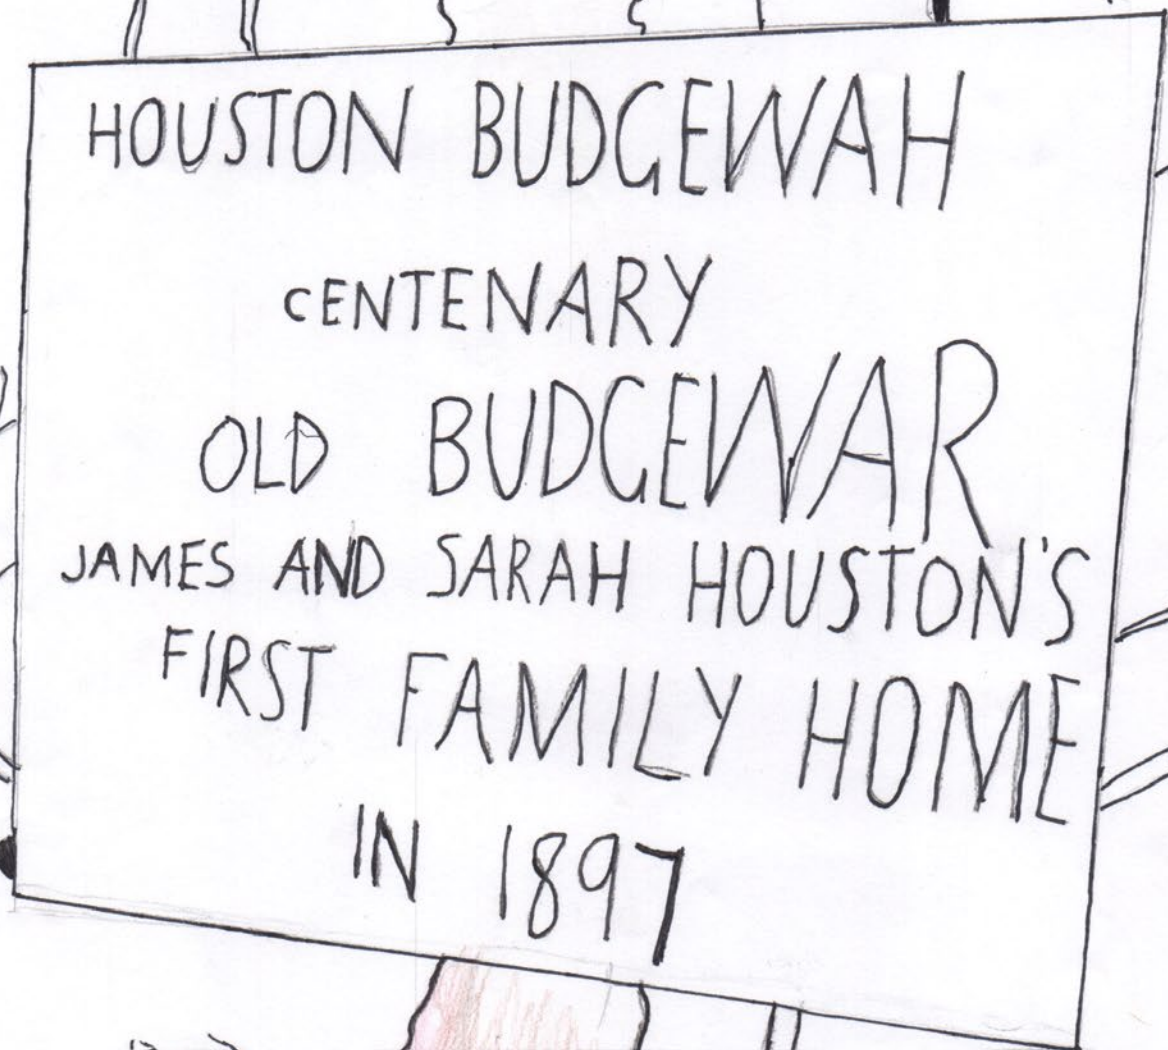 HOUSTON BUDGEWAH
CENTENARY
OLD BUDGEWAR
JAMES AND SARAH HOUSTON'S
FIRST FAMILY HOME
IN 1897